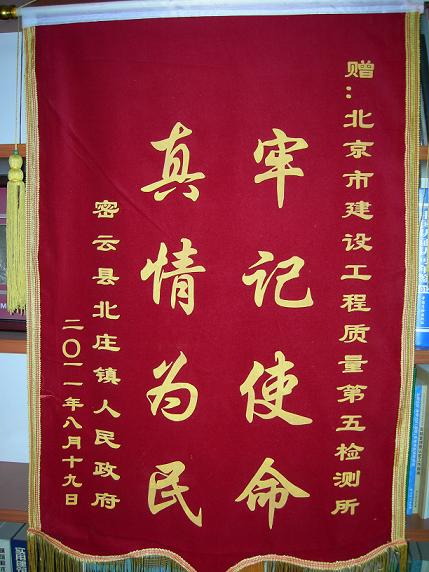 赠：北京市建设工程质量第五检测所
牢记使命
真情为民
密云县北庄镇人民政府
二〇一一年八月十九日